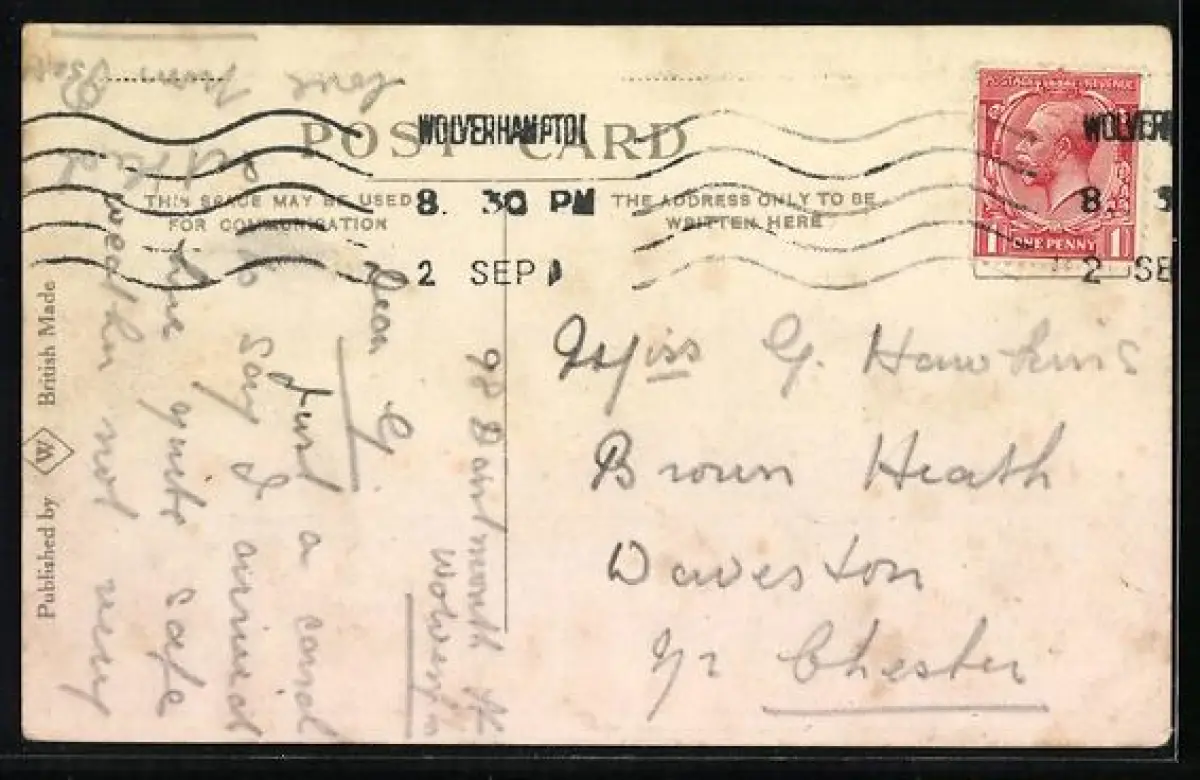 POST CARD
THIS SPACE MAY BE USED
FOR COMMUNICATION
THE ADDRESS ONLY TO BE
WRITTEN HERE
WOLVERHAMPTON
8. 30 PM
2 SEP
POSTAGE REVENUE
1 ONE PENNY 1
WOLVER
8. 3
2 SE
Miss G. Hawkins
Brown Heath
Waveston
Nr Chester
98 Dartmouth St
Wolver'n
Dear G.
Just a card
to say I arrived
here quite safe
weather not very
love
from
Published by W British Made